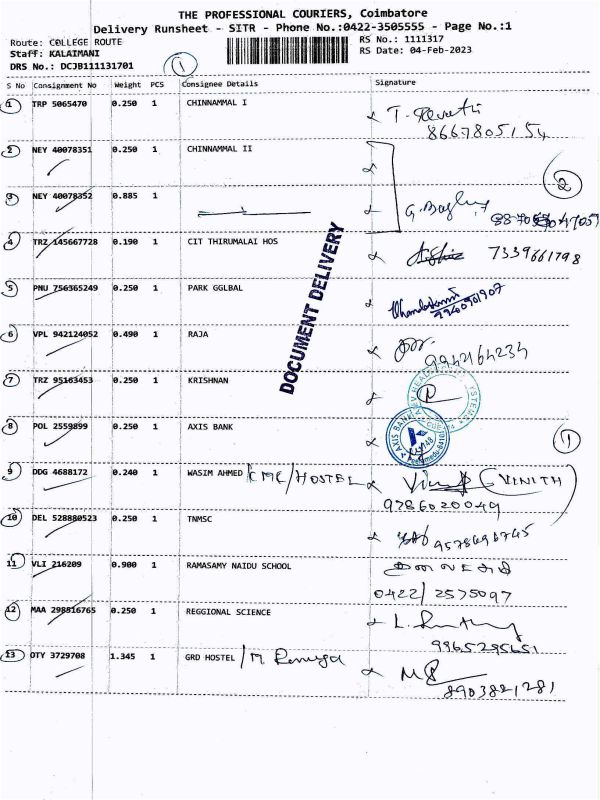 THE PROFESSIONAL COURIERS, Coimbatore
Delivery Runsheet - SITR - Phone No.:0422-3505555 - Page No.:1
Route: COLLEGE ROUTE
RS No.: 1111317
Staff: KALAIMANI
RS Date: 04-Feb-2023
DRS No.: DCJB111131701
1
S No Consignment No Weight PCS Consignee Details Signature
1 TRP 5065470 0.250 1 CHINNAMMAL I
8667805154
2 NEY 40078351 0.250 1 CHINNAMMAL II
2
3 NEY 40078352 0.885 1
4 TRZ 145667728 0.190 1 CIT THIRUMALAI HOS 7339661798
5 PNU 756365249 0.250 1 PARK GGLBAL
9940901907
6 VPL 942124052 0.490 1 RAJA
9942164234
7 TRZ 95163453 0.250 1 KRISHNAN
8 POL 2559899 0.250 1 AXIS BANK
AXIS BANK
1
9 DDG 4688172 0.240 1 WASIM AHMED KMC/HOSTEL G VINITH
9786020049
10 DEL 528880523 0.250 1 TNMSC
11 VLI 216209 0.900 1 RAMASAMY NAIDU SCHOOL
0422/2575097
12 MAA 298516765 0.250 1 REGGIONAL SCIENCE
9965295651
13 OTY 3729708 1.345 1 GRD HOSTEL
8903821281
DOCUMENT DELIVERY